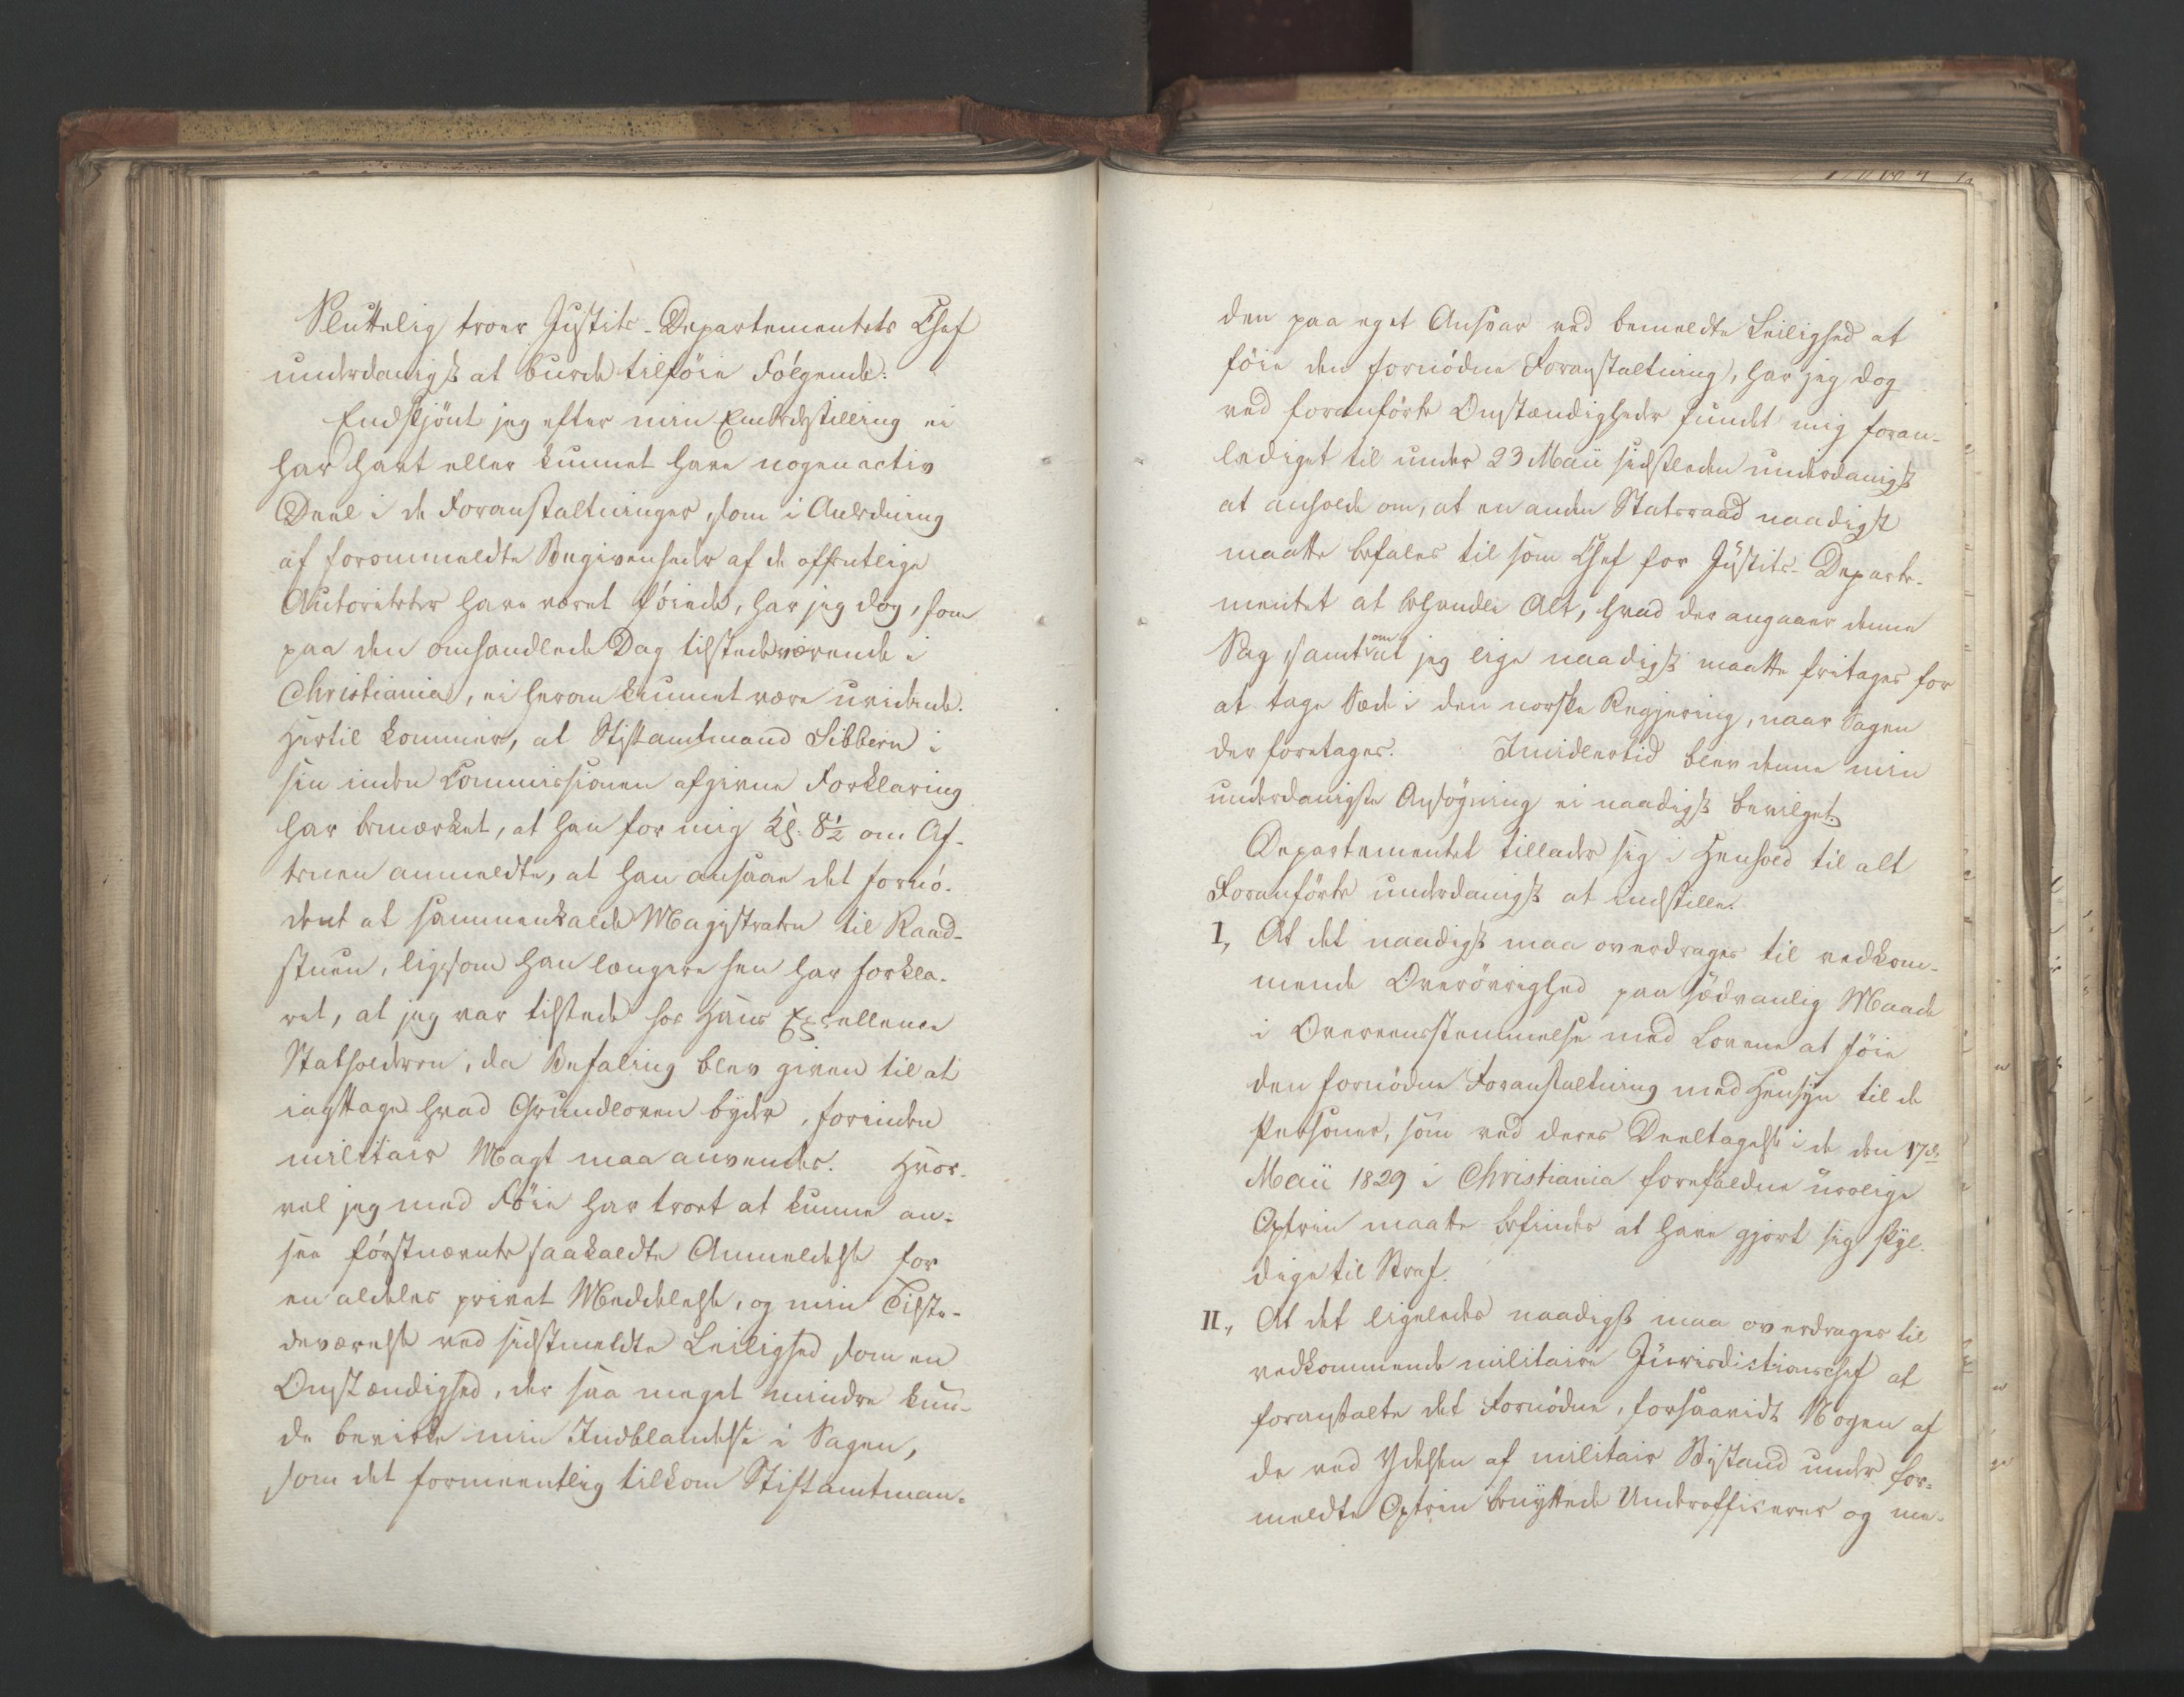 Sluttelig troer Justits-Departementets Chef
underdanigst at burde tilföie Fölgende:
Endskjönt jeg efter min Embedsstilling ei
har havt eller kunnet have nogen activ
Deel i de Foranstaltninger, som i Anledning
af forommeldte Begivenheder af de offentlige
Autoriteter have været föiede, har jeg dog, som
paa den omhandlede Dag tilstedeværende i
Christiania, ei herom kunnet være uvidende.
Hertil kommer, at Stiftamtmand Sibbern i
sin inden Commissionen afgivne Forklaring
har bemærket, at han for mig Kl. 8½ om Af-
tenen anmeldte, at han ansaae det fornö-
dent at sammenkalde Magistraten til Raad-
stuen, ligesom han længere hen har forkla-
ret, at jeg var tilstede hos Hans Excellence
Statholderen, da Befaling blev given til at
iagttage hvad Grundloven byder, forinden
militair Magt maa anvendes. Hvor-
vel jeg med Föie har troet at kunne an-
see förstnævnte saakaldte Anmeldelse for
en aldeles privat Meddelelse, og min Tilste-
deværelse ved sidstmeldte Leilighed som en
Omstændighed, der saa meget mindre kun-
de bevirke min Indblandelse i Sagen,
som det formeentlig tilkom Stiftamtman-
den paa eget Ansvar ved bemeldte Leilighed at
föie den fornödne Foranstaltning, har jeg dog
ved foranförte Omstændigheder fundet mig foran-
lediget til under 23 Maii sidstleden underdanigst
at anholde om, at en anden Statsraad naadigst
maatte befales til som Chef for Justits-Departe-
mentet at behandle Alt, hvad der angaaer denne
Sag, samt om at jeg lige naadigst maatte fritages for
at tage Sæde i den norske Regjering, naar Sagen
der foretages. Imidlertid blev denne min
underdanigste Ansögning ei naadigst bevilget.
Departementet tillader sig i Henhold til alt
Foranförte underdanigst at indstille:
I, At det naadigst maa overdrages til vedkom-
mende Overövrighed paa sædvanlig Maade
i Overeensstemmelse med Lovene at föie
den fornödne Foranstaltning med Hensyn til de
Personer, som ved deres Deeltagelse i de den 17de
Maii 1829 i Christiania forefaldne urolige
Optrin maatte befindes at have gjort sig skyl-
dige til Straf.
II, At det ligeledes naadigst maa overdrages til
vedkommende militaire Jurisdictionschef at
foranstalte det Fornödne, forsaavidt Nogen af
de ved Ydelsen af militair Bistand under for-
meldte Optrin benyttede Underofficerer og me-